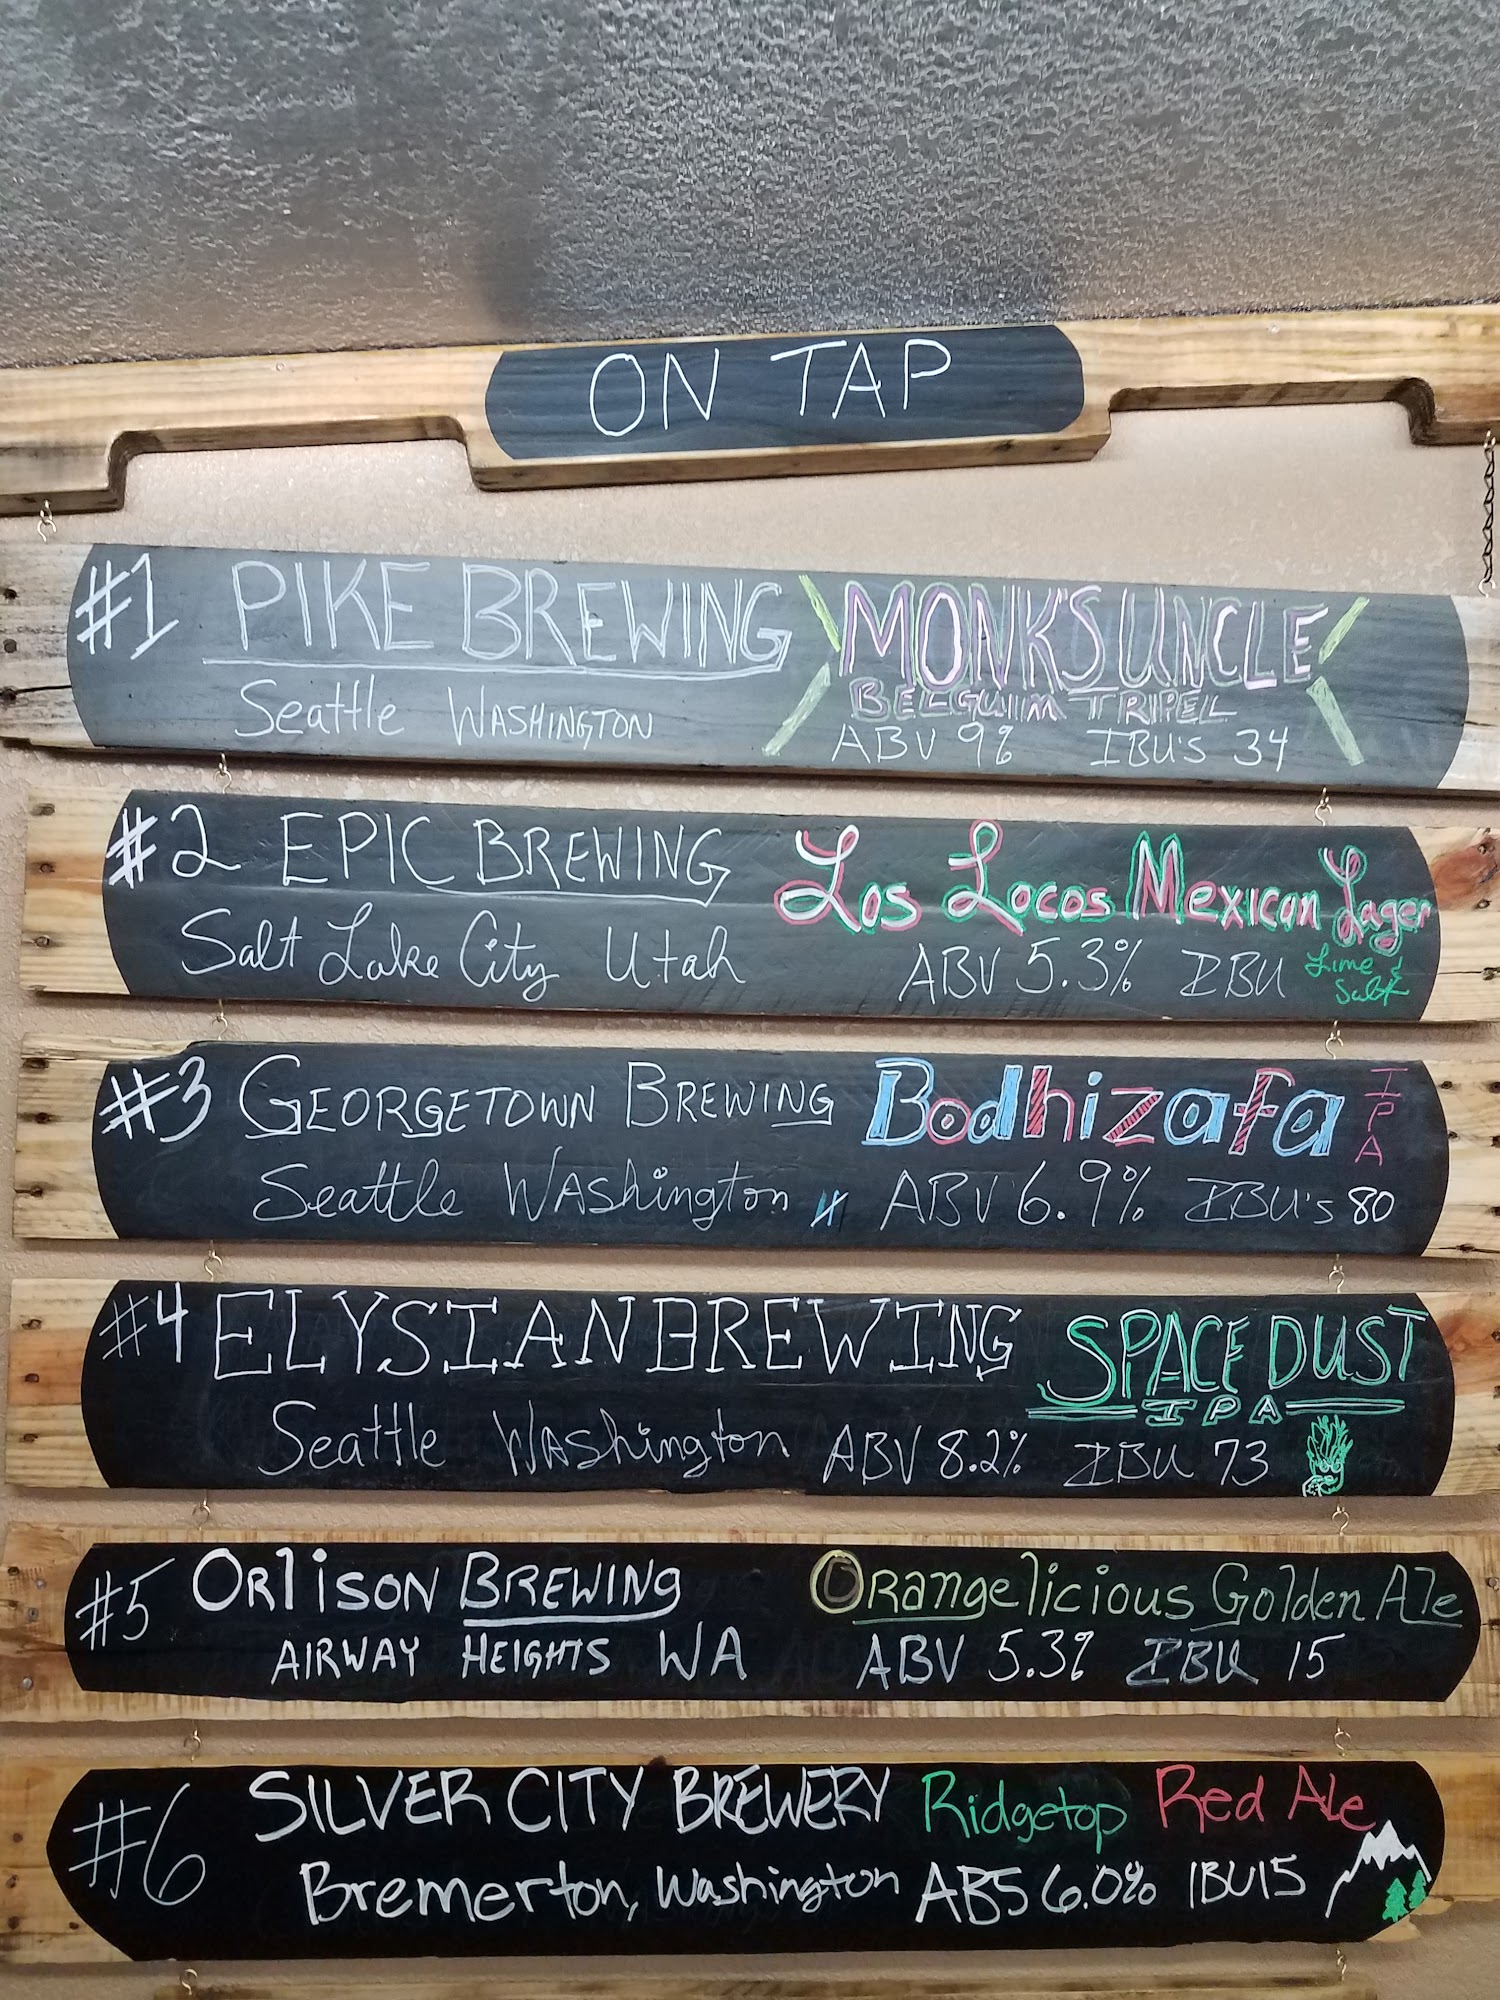 ON TAP
#1 PIKE BREWING MONK'S UNCLE
BELGUIM TRIPEL
Seattle WASHINGTON ABV 9% IBU'S 34
#2 EPIC BREWING Los Locos Mexican Lager
Salt Lake City Utah ABV 5.3% IBU Lime & Salt
#3 GEORGETOWN BREWING Bodhizafa IPA
Seattle Washington ABV 6.9% IBU's 80
#4 ELYSIAN BREWING SPACE DUST
IPA
Seattle Washington ABV 8.2% IBU 73
#5 Orlison BREWING Orangelicious Golden Ale
AIRWAY HEIGHTS WA ABV 5.3% IBU 15
#6 SILVER CITY BREWERY Ridgetop Red Ale
Bremerton, Washington ABS 6.0% IBU 15